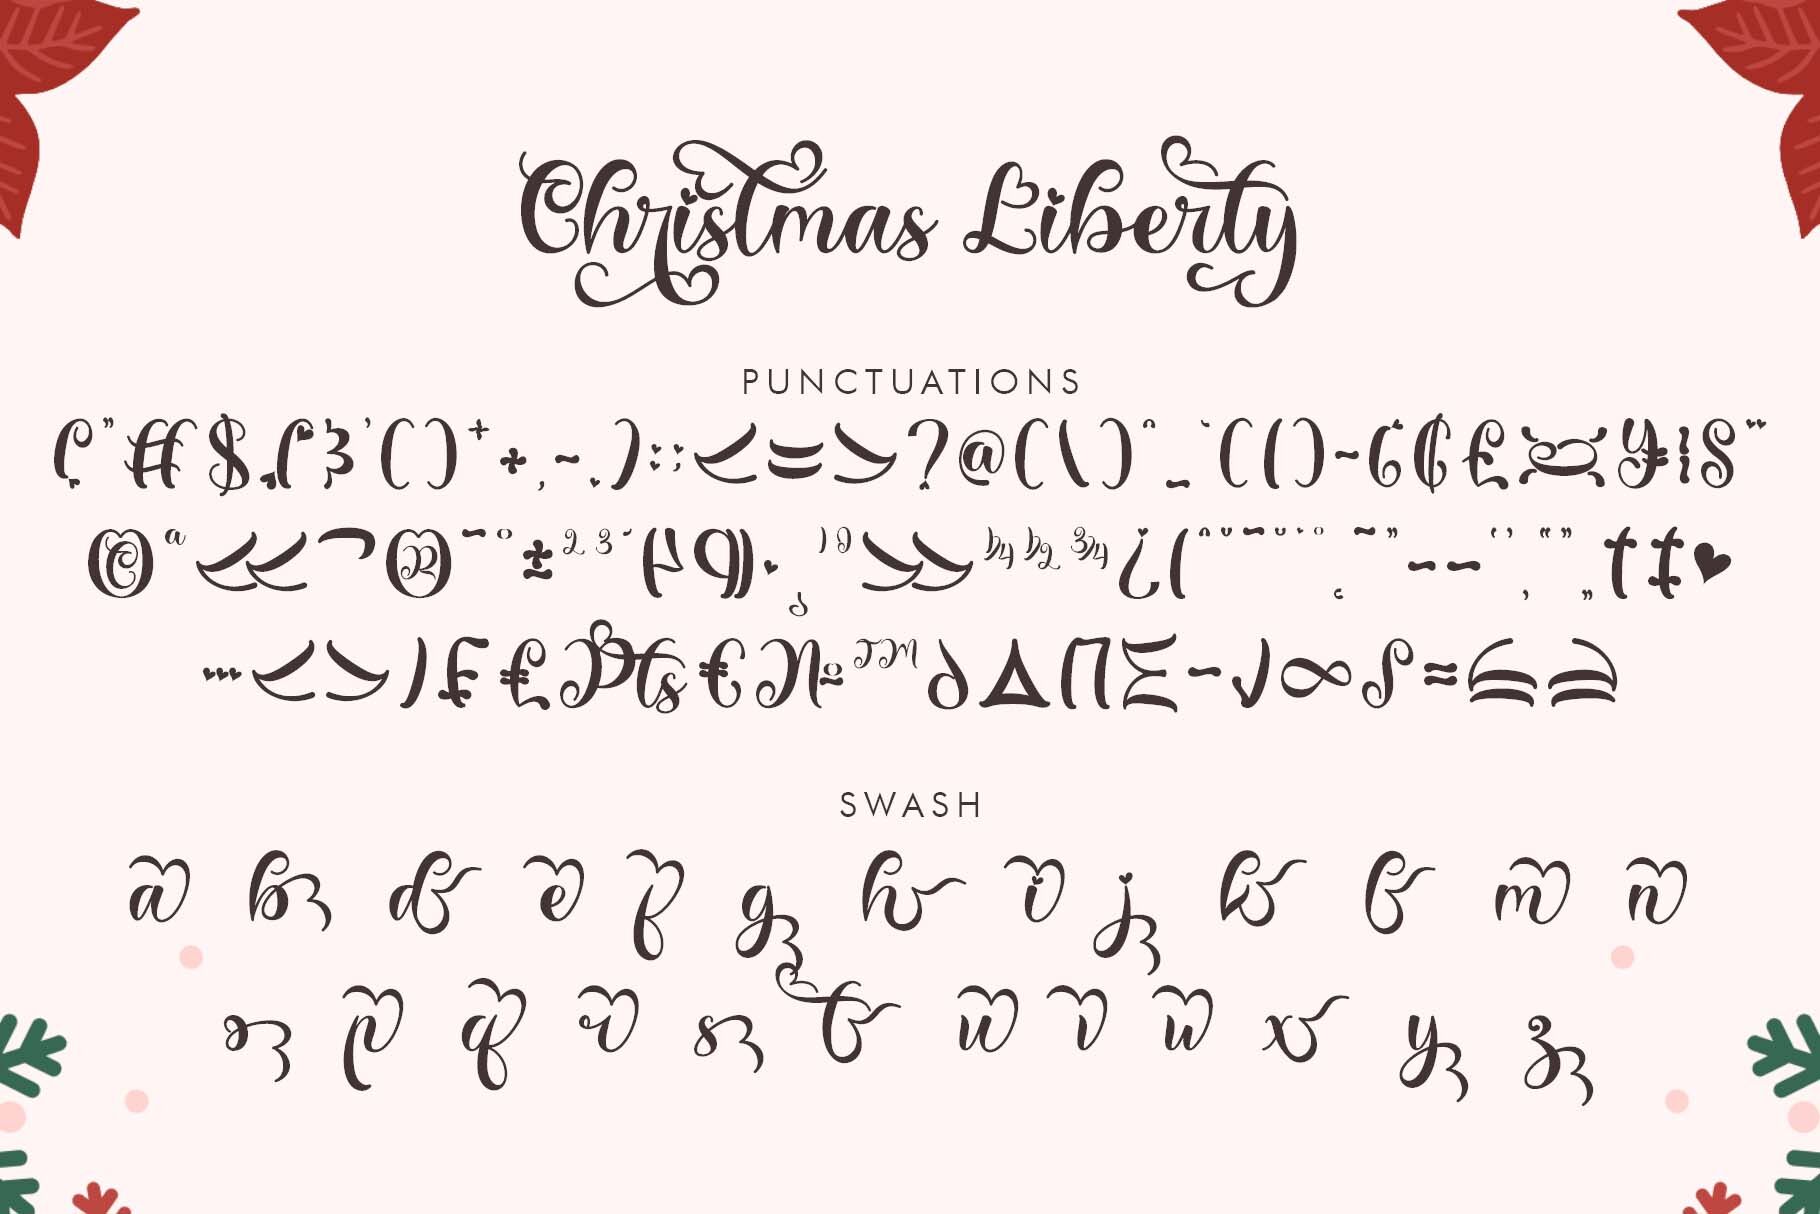 Christmas Liberty
PUNCTUATIONS
! " # $ % & ' ( ) * + , - . / : ; < = > ? @ [ \ ] ^ _ ` { | } ~ ¢ £ ¤ ¥ ¦ § ¨
© ª « ¬ ® ¯ ° ± ² ³ ´ µ ¶ · ¸ ¹ º » ¼ ½ ¾ ¿ † ‡ •
… ‹ › ⁄ ₣ ₤ ₧ € № ™ ∂ ∆ ∏ ∑ − √ ∞ ∫ ≈ ≤ ≥
SWASH
a b d e f g h i j k l m n
o p q r s t u v w x y z